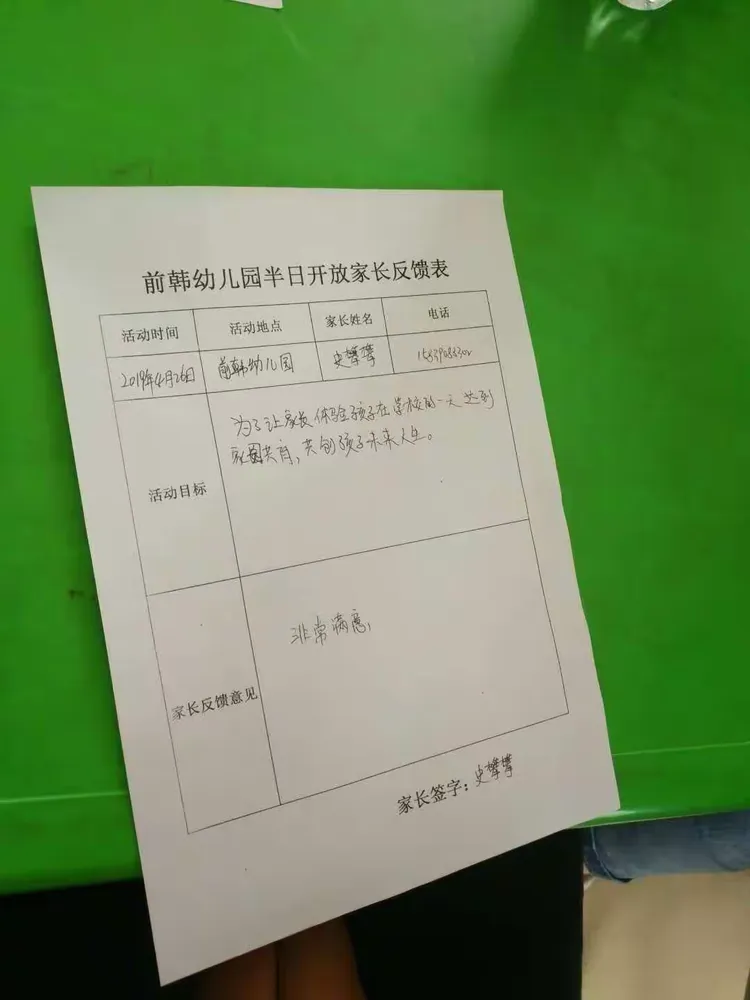 前韩幼儿园半日开放家长反馈表
活动时间 活动地点 家长姓名 电话
2019年4月26日 前韩幼儿园 史攀攀
活动目标
为了让家长体验孩子在学校的一天达到
家园共育,共创孩子未来人生。
家长反馈意见
非常满意,
家长签字:史攀攀